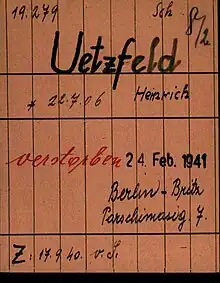 19.279 Sch 8/2
Uetzfeld
* 22.7.06 Heinrich
verstorben 24. Feb. 1941
Berlin-Britz
Parchimasig 7.
Z: 17.9.40. v. S.